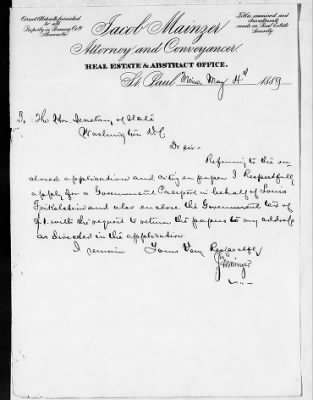 Correct Abstracts furnished
to all
Property in Ramsey Co.
Minnesota.
Titles examined and
made on Real Estate
Security.
Jacob Mainzer
Attorney and Conveyancer,
REAL ESTATE & ABSTRACT OFFICE.
St. Paul, Minn. May 4th 1889
To the Hon. Secretary of State
Washington D.C.
Dr Sir.
Referring to the en
closed application and citizen paper I Respectfully
apply for a Government Passport in behalf of Louis
and also enclose the Government tax of
$1. with the request to return the papers to my address
as directed in the application
I remain Yours Very Respectfully
J Mainzer